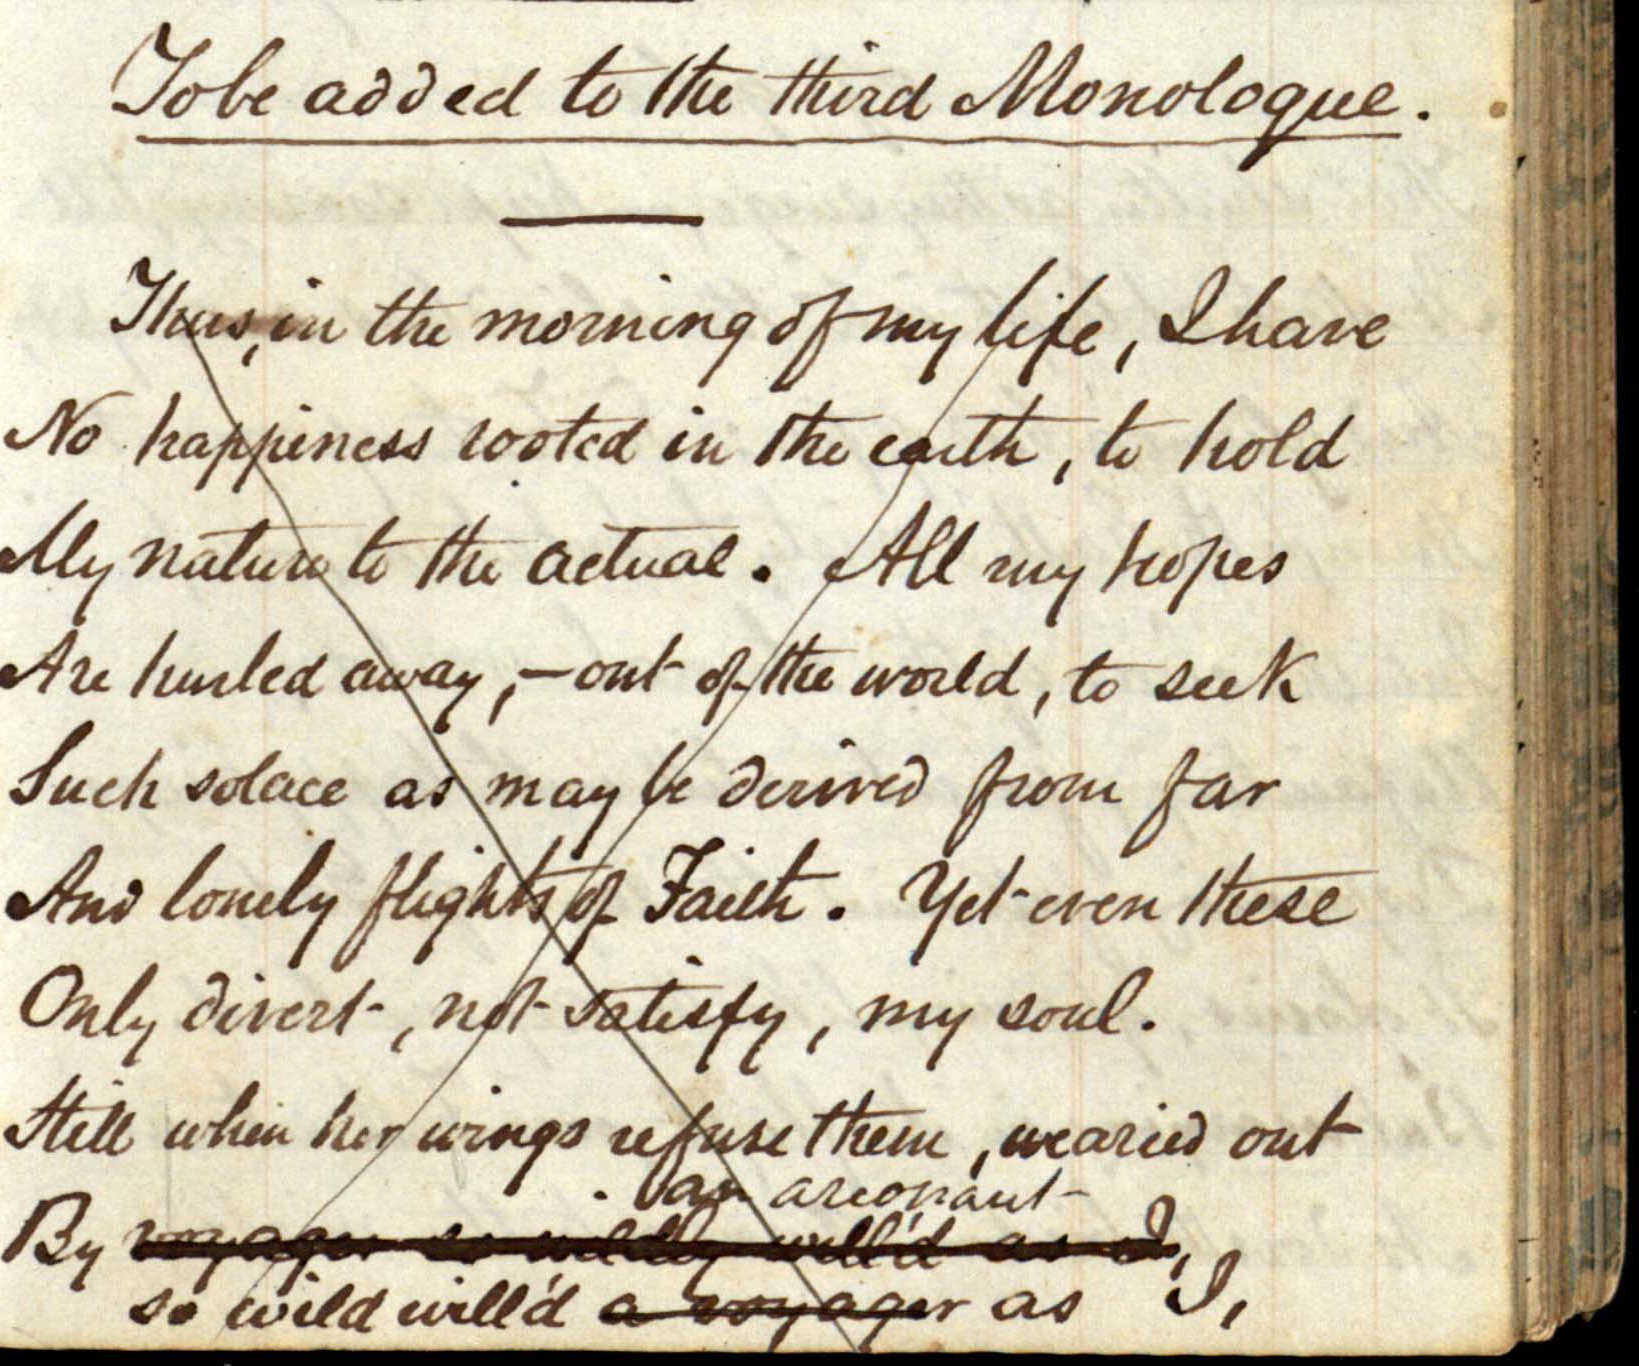 To be added to the third Monologue.
Thus, in the morning of my life, I have
No happiness rooted in the earth, to hold
My nature to the actual. All my hopes
Are hurled away,—out of the world, to seek
Such solace as may be derived from far
And lonely flights of Faith. Yet even these
Only divert, not satisfy, my soul.
Still when her wings refuse them, wearied out
an areonaut
By voyager so wildly will'd as I,
so wild will'd a voyager as I,